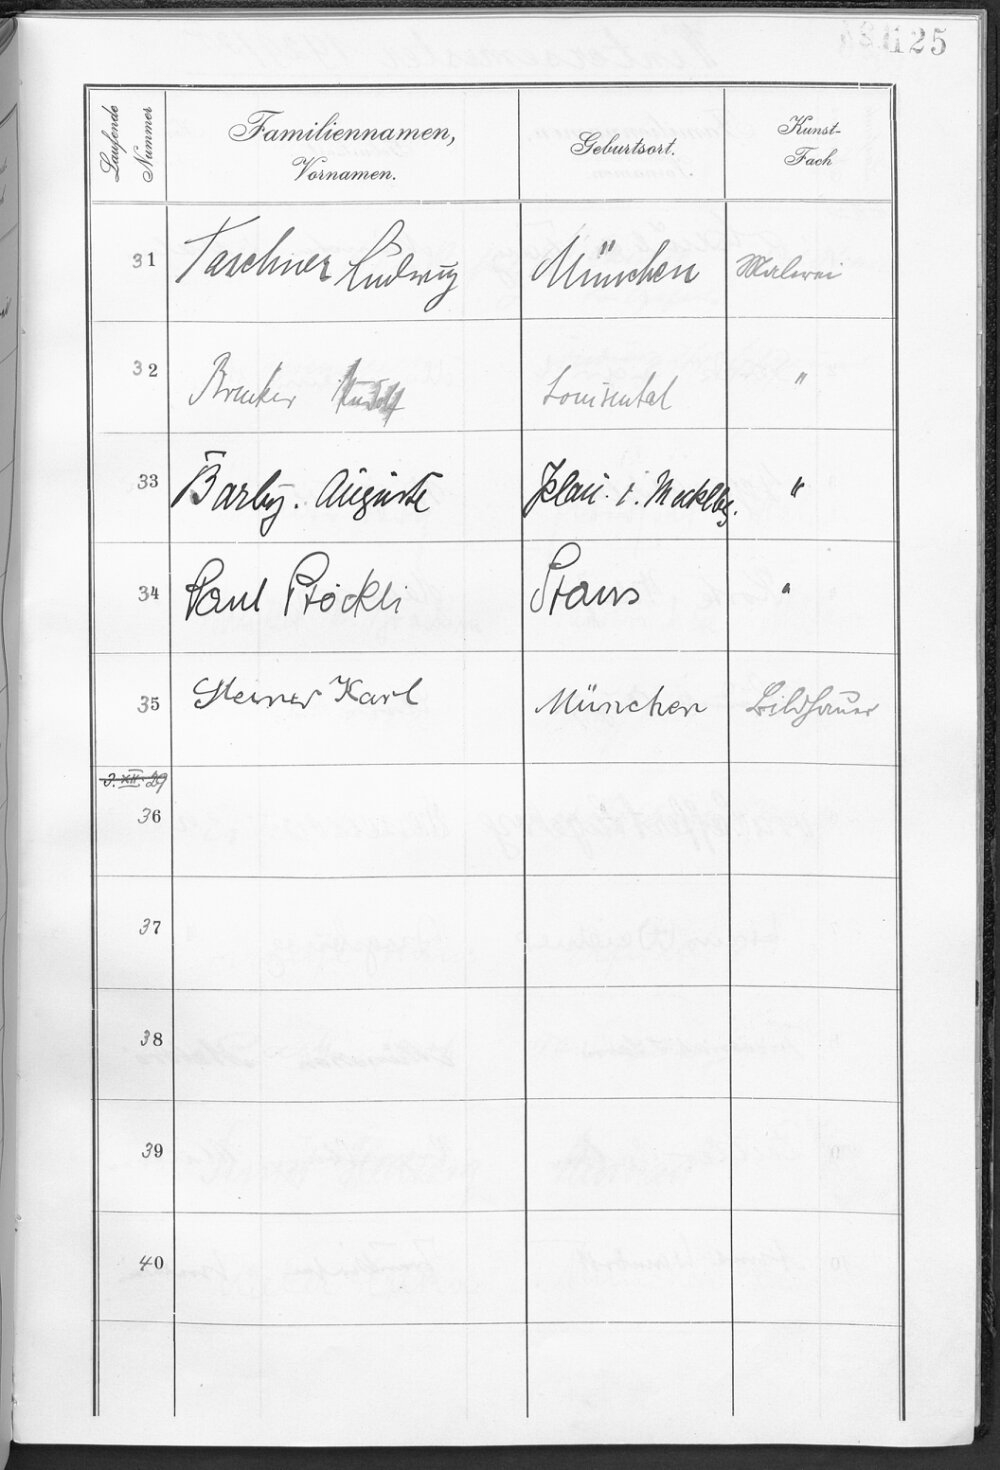 125
Laufende Nummer
Familiennamen, Vornamen.
Geburtsort.
Kunst-Fach
31 Taschner Ludwig München Malerei
32 Brucker Rudolf Louisental "
33 Barby. Auguste Plau. i. Mecklbg. "
34 Paul Stöckli Stans "
35 Sterner Karl München Bildhauer
3. XII. 29
36
37
38
39
40